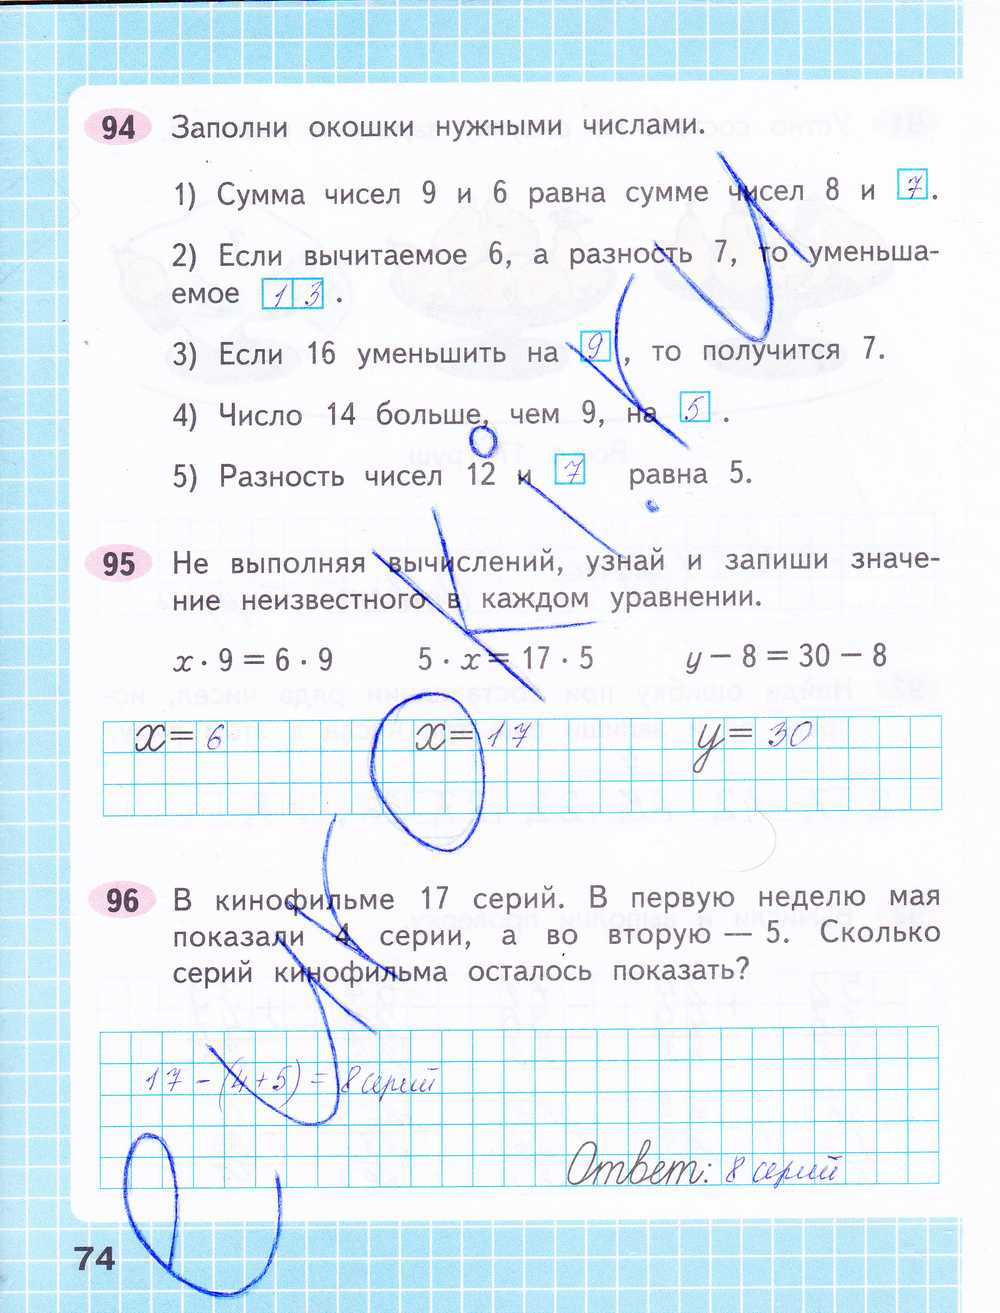 94 Заполни окошки нужными числами.
1) Сумма чисел 9 и 6 равна сумме чисел 8 и 7.
2) Если вычитаемое 6, а разность 7, то уменьша-
емое 13.
3) Если 16 уменьшить на 9, то получится 7.
4) Число 14 больше, чем 9, на 5.
5) Разность чисел 12 и 7 равна 5.
95 Не выполняя вычислений, узнай и запиши значе-
ние неизвестного в каждом уравнении.
x · 9 = 6 · 9 5 · x = 17 · 5 y − 8 = 30 − 8
x = 6 x = 17 y = 30
96 В кинофильме 17 серий. В первую неделю мая
показали 4 серии, а во вторую — 5. Сколько
серий кинофильма осталось показать?
17 − (4+5) = 8 серий
Ответ: 8 серий
74